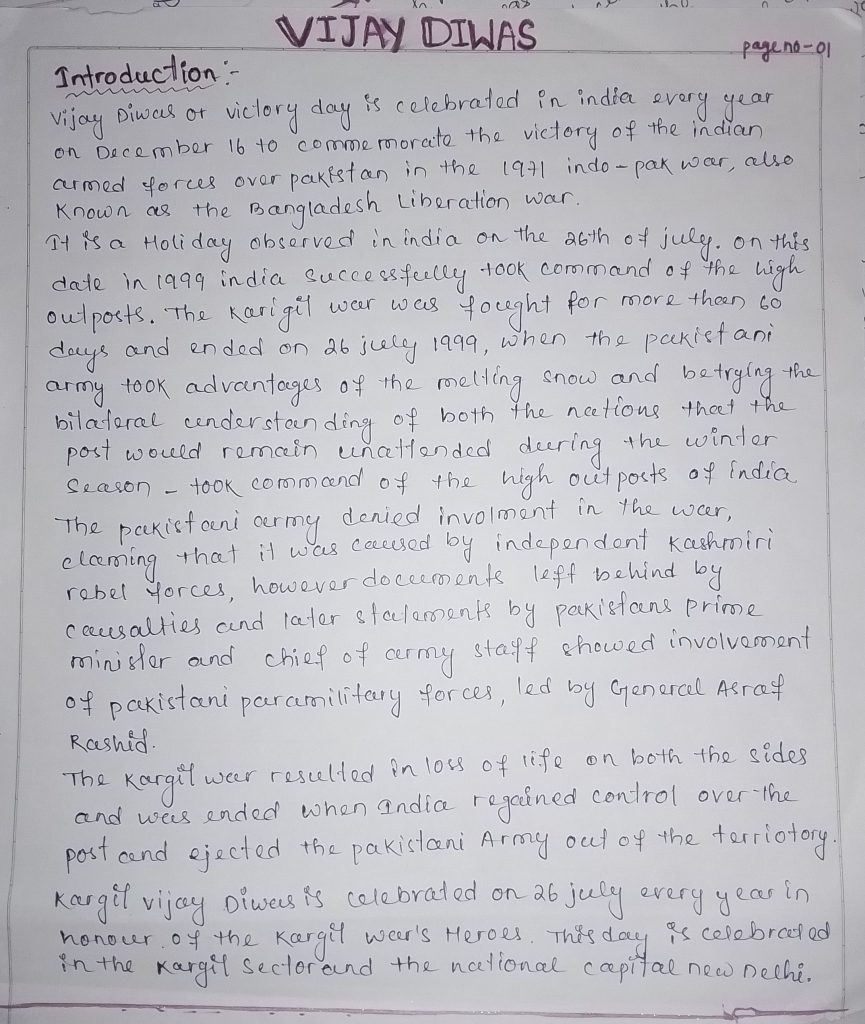 VIJAY DIWAS
page no-01
Introduction:-
Vijay Diwas or victory day is celebrated in india every year
on December 16 to commemorate the victory of the indian
armed forces over pakistan in the 1971 indo-pak war, also
Known as the Bangladesh Liberation war.
It is a Holiday observed in india on the 26th of july. on this
date in 1999 india successfully took command of the high
outposts. The Karigil war was fought for more than 60
days and ended on 26 july 1999, when the pakistani
army took advantages of the melting snow and betrying the
bilateral understanding of both the nations that the
post would remain unattended during the winter
season - took command of the high outposts of india
The pakistani army denied involment in the war,
claming that it was caused by independent Kashmiri
rebel forces, however documents left behind by
causalties and later statements by pakistans prime
minister and chief of army staff showed involvement
of pakistani paramilitary forces, led by General Asraf
Rashid.
The Kargil war resulted in loss of life on both the sides
and was ended when India regained control over the
post and ejected the pakistani Army out of the terriotory.
Kargil vijay Diwas is celebrated on 26 july every year in
honour of the Kargil war's Heroes. This day is celebrated
in the Kargil Sector and the national capital new Delhi.